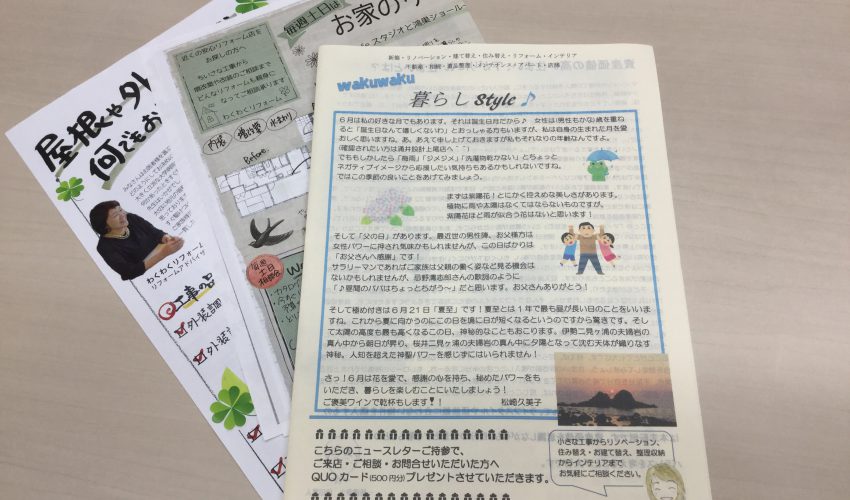 新築・リノベーション・建て替え・住み替え・リフォーム・インテリア
不動産・相続・遺品整理・メンテナンス・アパート・店舗
wakuwaku
暮らし Style♪
6月は私の好きな月でもあります。それは誕生日月だから♪ 女性は(男性もかな)歳を重ね
ると「誕生日なんて嬉しくないわ」とおっしゃる方もいますが、私は自身の生まれた月を愛
おしく思いますね。あ、あえて申し上げておきますが私もそれなりの年齢なんですよ。
(確認されたい方は涌井設計上尾店へ＾＾)
でももしかしたら「梅雨」「ジメジメ」「洗濯物乾かない」とちょっと
ネガティブイメージから応援したい気持ちもあるかもしれないですね。
ではこの季節の良いことをあげてみましょう。
まずは紫陽花!とにかく控えめな美しさがあります。
植物に雨や太陽はなくてはならないものですが、
紫陽花ほど雨が似合う花はないと思います!
そして「父の日」があります。最近世の男性陣、お父様方は
女性パワーに押され気味かもしれませんが、この日ばかりは
「お父さんへ感謝」です!
サラリーマンであればご家族は父親の働く姿など見る機会は
ないかもしれませんが、忌野清志郎さんの歌詞のように
「♪昼間のパパはちょっとちがう～」だと思います。お父さんありがとう!
そして極め付きは6月21日「夏至」です!夏至とは1年で最も昼が長い日のことをいいま
すね。これから夏に向かうのにこの日を境に日が短くなるというのですから驚きです。そし
て太陽の高度も最も高くなるこの日、神秘的なこともおこります。伊勢二見ヶ浦の夫婦岩の
真ん中から朝日が昇り、桜井二見ヶ浦の夫婦岩の真ん中に夕陽となって沈む天体が織りなす
神秘。人知を超えた神聖パワーを感じずにはいられません!
さっ!6月は花を愛で、感謝の心を持ち、秘めたパワーをも
いただき、暮らしを楽しむことにいたしましょう!
ご褒美ワインで乾杯もします!!
松崎久美子
こちらのニュースレターご持参で、
ご来店・ご相談・お問合せいただいた方へ
QUOカード(500円分)プレゼントさせていただきます。
小さな工事からリノベーション、
住み替え・お建て替え、整理収納
からインテリアまで
お気軽にご相談ください。
毎週土日は
お家の
スタジオと鴻巣ショール
近くの安心リフォーム店を
お探しの方へ
ちいさな工事から
増改築や改築のご相談まで
どんなリフォームも親身に
なってご相談承ります
わくわくリフォーム
内装
増改築
水まわり
Before
毎週
土日
相談会
屋根や外
何でもお
わくわくリフォーム
リフォームアドバイザ
工事の品
外装
外装